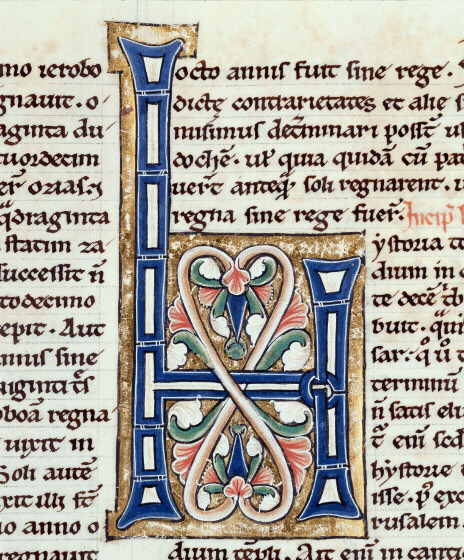 mo ierobo
gnauit. o
aginta du
tuordecim
er ozias. ⁊
qdraginta
statim za
successit n̄
todecimo
cepit. Aut
nnus sine
uiginti t̄s
oboā regna
uixit in
Soli autē
xit illi st̄
io anno o
regnauit
octo annis fuit sine rege.
dicte contrarietates et alie s
nusimus det̄minari post̄ ul
dochē. ul̄ quia quidā cū pat
uert̄ anteq̄ soli regnarent. u
regna sine rege fuer̄. Incip̄
hystoria te
dium in c
te decē
buit. qui
sar. q̄ ū t
terminū
n̄ satis eli
t̄ enī sed
hystorie
isse. p̄ exc
rusalem.
dium tēpli. Ait enī in cantic